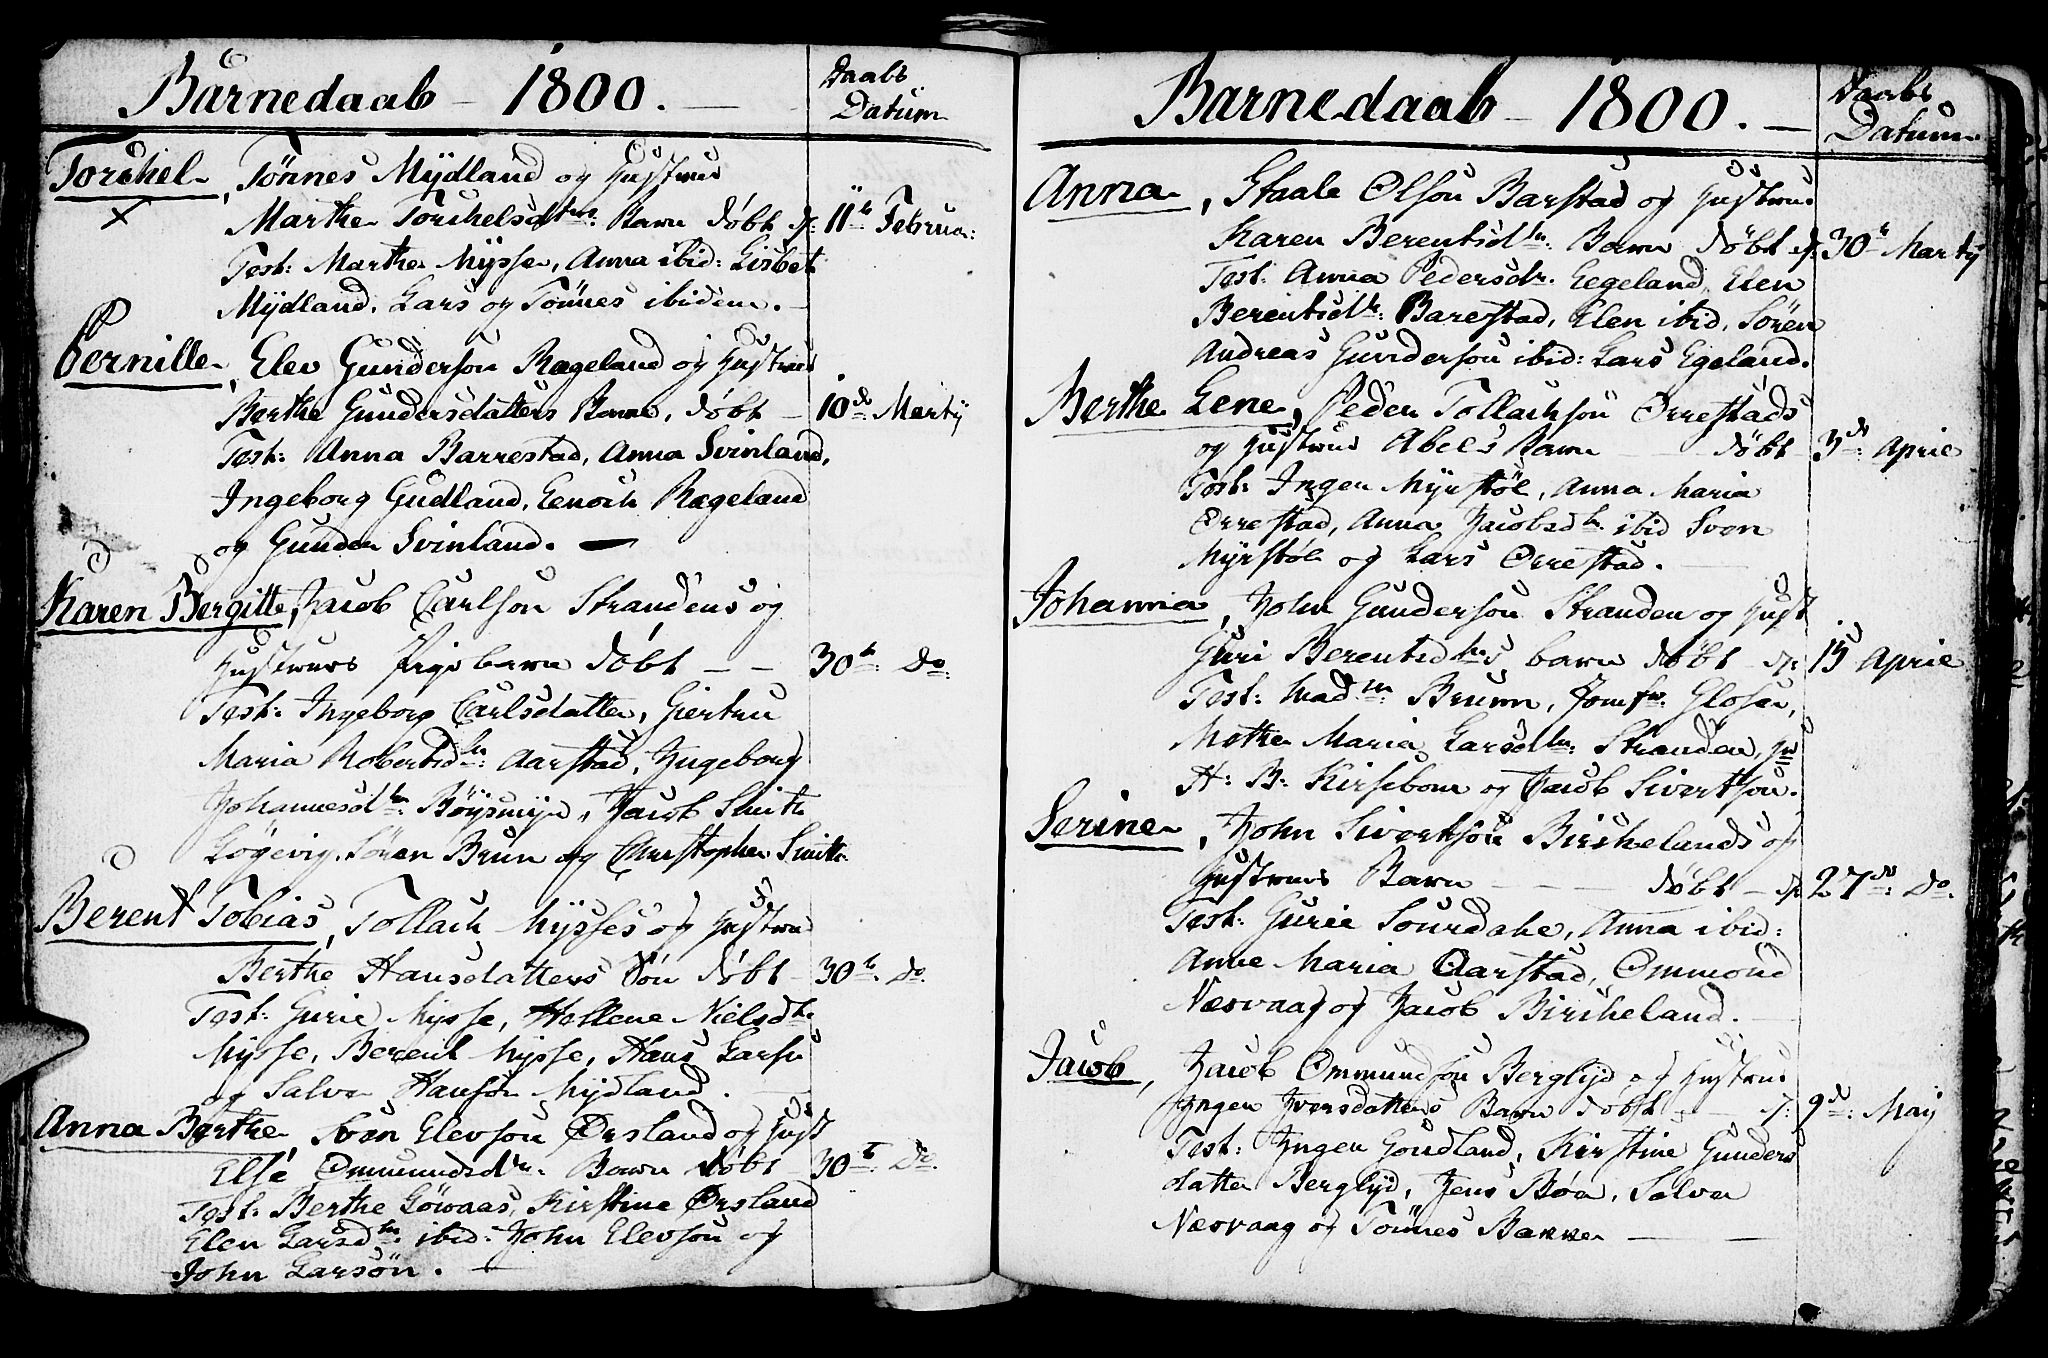 Barnedaab - 1800. -
Daabs
Datum
Torchel, Tönnes Mÿdland og Hustrue
Marthe Torchelsdttrs: Barn döbt d: 11te Februa:
Test: Marthe Mÿsse, Anna ibid: Lisbet
Mÿdland. Lars og Tönnes ibidem. -
Pernille, Elev Gunderson Rægeland og Hustrues
Berthe Gundersdatters Barn, döbt - 10de Martÿ
Test: Anna Barrestad, Anna Svinland,
Ingeborg Gudland, Eenoch Rægeland
og Gunder Svinland. -
Karen Bergitte, Jacob Carlson Strandens og
Hustrues Pigebarn döbt - - 30te: do:
Test: Ingeborg Carlsdatter, Giertru
Maria Robertsdtr: Aarstad, Ingeborg
Johannesdtr: Böÿsmÿr, Jacob Smith
Lögevig, Sören Brun og Christopher Smith
Berent Tobias, Tollach Mÿsses og Hustrue
Berthe Hansdatters Sön döbt - 30te: do.
Test: Gurie Mÿsse, Hellene Nielsdtr
Mÿsse, Berent Mÿsse, Hans Larss
og Salve Hansön Mÿdland. -
Anna Berthe, Sven Elevson Örsland og Hust
Else Ommundsdtr. Barn döbt 30te: do.
Test: Berthe Löwaas, Kirstine Örsland
Elen Larsdtr. ibid: John Elevson og
John Larsön. -
Barnedaab - 1800. -
Daabs
Datum
Anna, Staale Olson Barstad og Hustrue
Karen Berentsdtr: Barn döbt d: 30te Martÿ
Test: Anna Pedersdr. Eegeland, Elen
Berentsdtr: Barestad, Elen ibid, Sören
Andreas Gunderson ibid: Lars Egeland.
Berthe Lene, Peder Tollachson Örrestads
og Hustrue Abels Barn - döbt 3de: Aprie
Test: Inger Mÿrstöl, Anna Maria
Örrestad, Anna Jacobsdtr. ibid Sven
Mÿrstöl og Lars Örrestad. -
Johanna, John Gunderson Stranden og Hust
Guri Berentsdtrs barn döbt d: 15 Aprie
Test: Madm: Brunn, Jomfr: Gloser,
Methe Maria Larsdtr: Stranden, Hr
H: B: Kirsebom og Jacob Sivertson.
Serine, John Sivertson Birchelands og
Hustrues Barn - - - döbt - d: 27de: do.
Test: Gurie Sourdahe, Anna ibid:
Anne Maria Aarstad, Ommond
Næsvaag og Jacob Bircheland. -
Jacob, Jacob Ommundson Berglÿd og Hustrue
Inger Iversdatters Barn döbt - - d: 9de: Maÿ
Test: Inger Goudland, Kirstine Gunders
datter Berglÿd, Jens Böe, Salve
Næsvaag og Tönnes Bakke - -